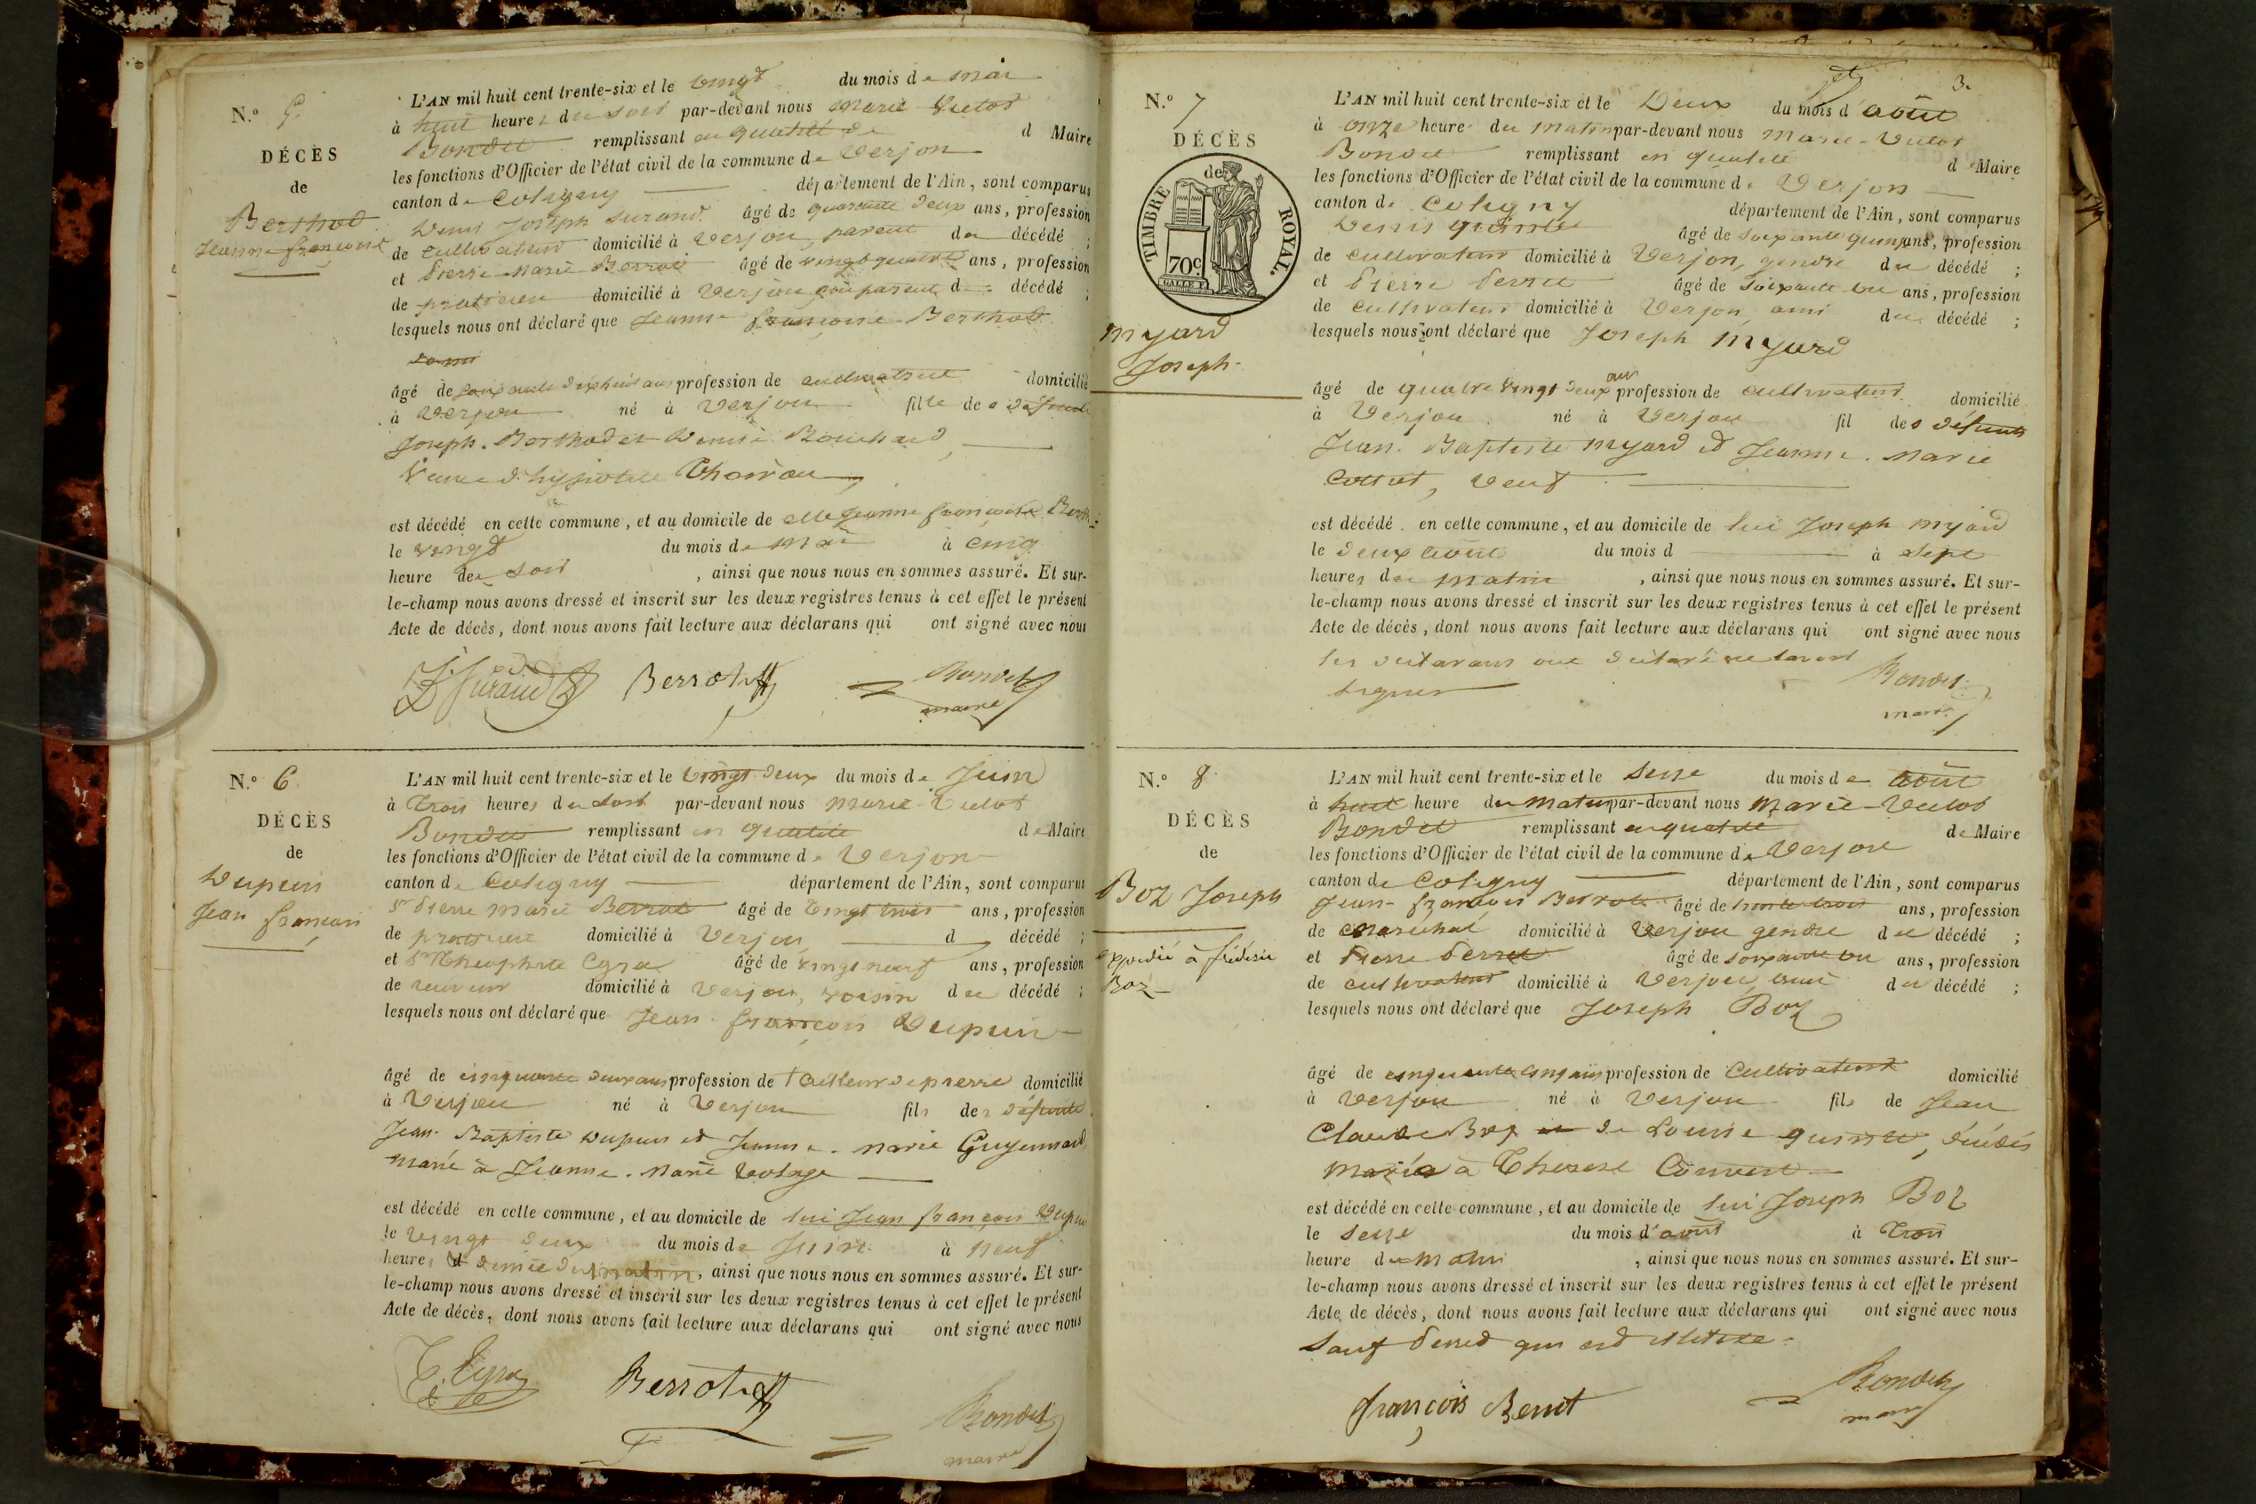 N.° 5.
DÉCÈS
de
Berthod
Jeanne françoise
L'AN mil huit cent trente-six et le vingt du mois de mai
à huit heures du soir par-devant nous Marie Victor
Bondet remplissant en qualité de d Maire
les fonctions d'Officier de l'état civil de la commune de Verjon
canton de Coligny département de l'Ain, sont comparus
Denis Joseph Durand âgé de quarante deux ans, profession
de cultivateur domicilié à Verjon, parent de décédé ;
et Pierre-Marie Berrod âgé de vingt quatre ans, profession
de praticien domicilié à Verjon parent d décédé ;
lesquels nous ont déclaré que Jeanne françoise Berthod
âgé de soixante dix huit ans profession de cultivatrice domicilié
à Verjon né à Verjon fille de s défunts
Joseph Berthod et Denise Bouchard,
Veuve d'hypolite Chanrau,
est décédé en cette commune, et au domicile de elle Jeanne françoise Berthod
le vingt du mois de mai à cinq
heure du soir , ainsi que nous nous en sommes assuré. Et sur-
le-champ nous avons dressé et inscrit sur les deux registres tenus à cet effet le présent
Acte de décès, dont nous avons fait lecture aux déclarans qui ont signé avec nous
Durand Berrod Bondet
maire
N.° 6.
DÉCÈS
de
Dupuis
Jean françois
L'AN mil huit cent trente-six et le vingt deux du mois de Juin
à trois heures du soir par-devant nous Marie-Victor
Bondet remplissant en qualité de Maire
les fonctions d'Officier de l'état civil de la commune de Verjon
canton de Coligny département de l'Ain, sont comparus
Sr Pierre Marie Berrod âgé de vingt trois ans, profession
de praticien domicilié à Verjon, d décédé ;
et Sr Théophile âgé de vingt neuf ans, profession
de domicilié à Verjon, voisin du décédé ;
lesquels nous ont déclaré que Jean françois Dupuis
âgé de cinquante deux ans profession de tailleur de pierre domicilié
à Verjon né à Verjon fils des défunts
Jean-Baptiste Dupuis et Jeanne-Marie Guyennard
marié à Jeanne-Marie
est décédé en cette commune, et au domicile de lui Jean françois Dupuis
le vingt deux du mois de Juin à neuf
heures et demie du matin, ainsi que nous nous en sommes assuré. Et sur-
le-champ nous avons dressé et inscrit sur les deux registres tenus à cet effet le présent
Acte de décès, dont nous avons fait lecture aux déclarans qui ont signé avec nous
Berrod
Bondet
maire
3.
N.° 7
DÉCÈS
de
TIMBRE ROYAL.
70c
Myard
Joseph
L'AN mil huit cent trente-six et le Deux du mois d'août
à onze heure du matin par-devant nous Marie-Victor
Bondet remplissant en qualité de Maire
les fonctions d'Officier de l'état civil de la commune de Verjon
canton de Coligny département de l'Ain, sont comparus
Denis âgé de soixante quinze ans, profession
de cultivateur domicilié à Verjon, gendre du décédé ;
et Pierre Perret âgé de soixante un ans, profession
de cultivateur domicilié à Verjon, ami du décédé ;
lesquels nous ont déclaré que Joseph Myard
âgé de quatre vingt deux ans profession de cultivateur domicilié
à Verjon né à Verjon fil des défunts
Jean-Baptiste Myard et Jeanne-Marie
Cottet, veuf
est décédé en cette commune, et au domicile de lui Joseph Myard
le deux août du mois d à sept
heures du matin , ainsi que nous nous en sommes assuré. Et sur-
le-champ nous avons dressé et inscrit sur les deux registres tenus à cet effet le présent
Acte de décès, dont nous avons fait lecture aux déclarans qui ont signé avec nous
les déclarans ont déclaré ne savoir
signer Bondet
maire
N.° 8
DÉCÈS
de
Boz Joseph
expédié à frédéric
Boz
L'AN mil huit cent trente-six et le seize du mois de août
à huit heure du matin par-devant nous Marie-Victor
Bondet remplissant en qualité de Maire
les fonctions d'Officier de l'état civil de la commune de Verjon
canton de Coligny département de l'Ain, sont comparus
Jean-françois âgé de trente trois ans, profession
de maréchal domicilié à Verjon gendre du décédé ;
et Pierre Perret âgé de soixante un ans, profession
de cultivateur domicilié à Verjon, ami du décédé ;
lesquels nous ont déclaré que Joseph Boz
âgé de cinquante cinq ans profession de cultivateur domicilié
à Verjon né à Verjon fils de Jean
Claude Boz et de Louise, décédés
marié à Thérèse Convert
est décédé en cette commune, et au domicile de lui Joseph Boz
le seize du mois d'août à trois
heure du matin , ainsi que nous nous en sommes assuré. Et sur-
le-champ nous avons dressé et inscrit sur les deux registres tenus à cet effet le présent
Acte de décès, dont nous avons fait lecture aux déclarans qui ont signé avec nous
sauf Perret qui est illettré.
françois Bondet
maire